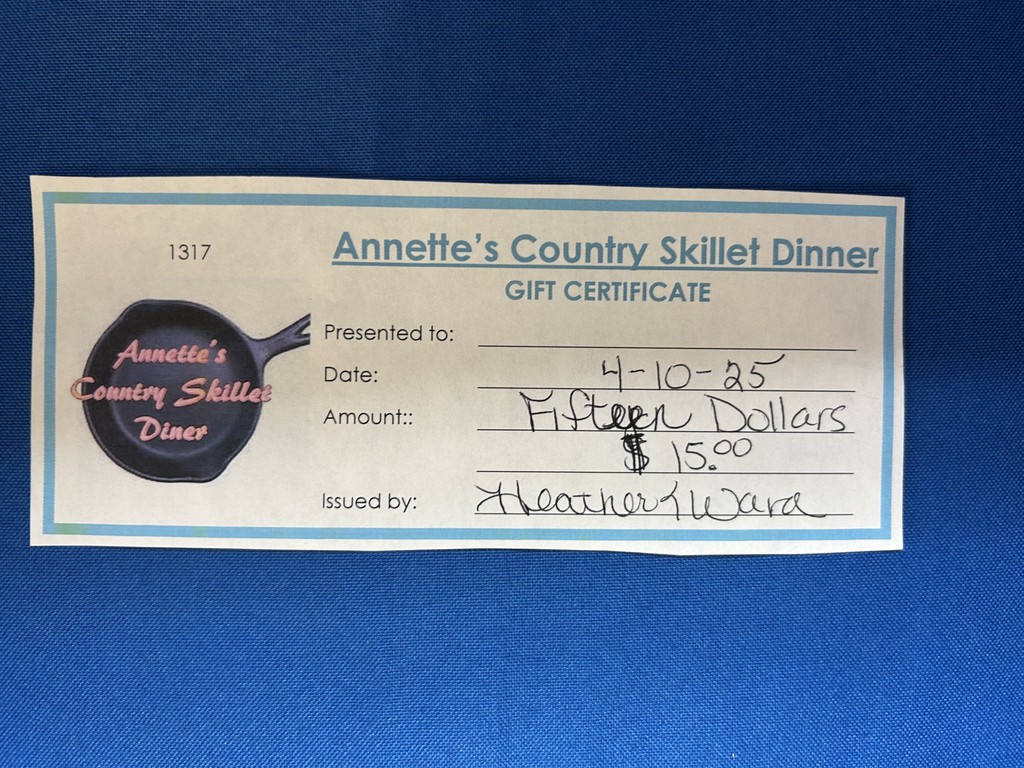 1317
Annette's
Country Skillet
Diner
Annette's Country Skillet Dinner
GIFT CERTIFICATE
Presented to:
Date: 4-10-25
Amount:: Fifteen Dollars
$ 15.00
Issued by: Heather Ward